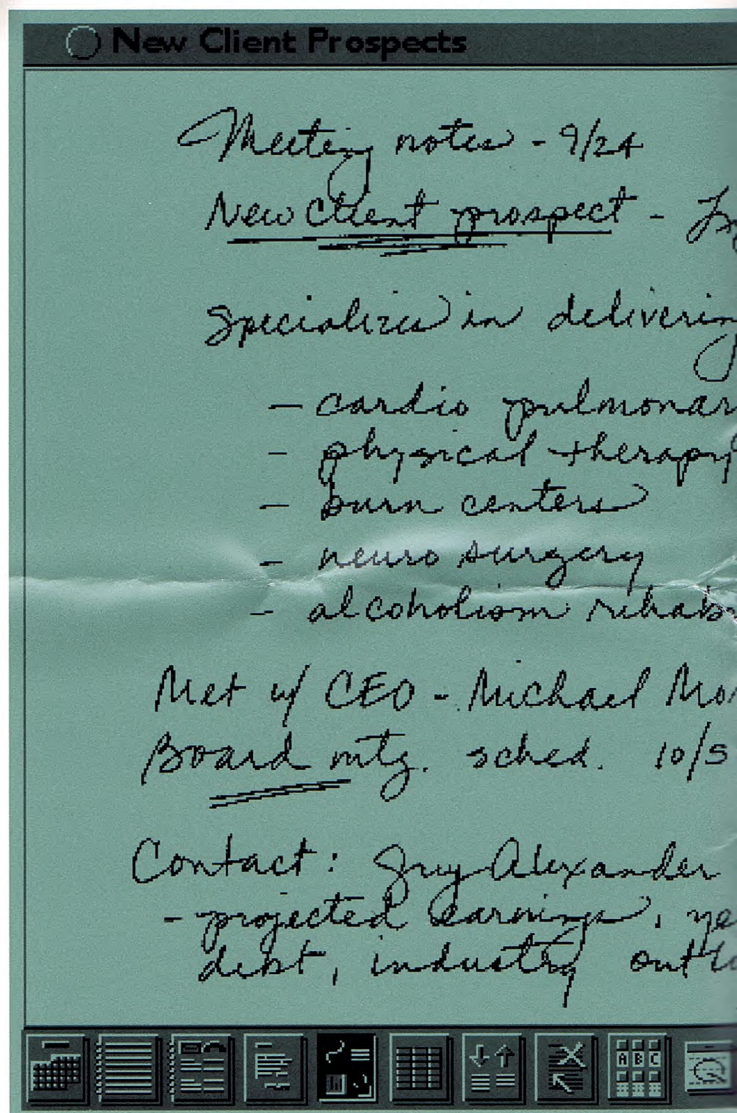 New Client Prospects
Meeting notes - 9/24
New Client prospect -
Specializes in delivering
- cardio pulmonar
- physical therapy
- burn centers
- neuro surgery
- alcoholism rehab
Met w/ CEO - Michael Mo
Board mtg. sched. 10/5
Contact: Alexander
- projected earnings, ye
debt, industry outl
A B C